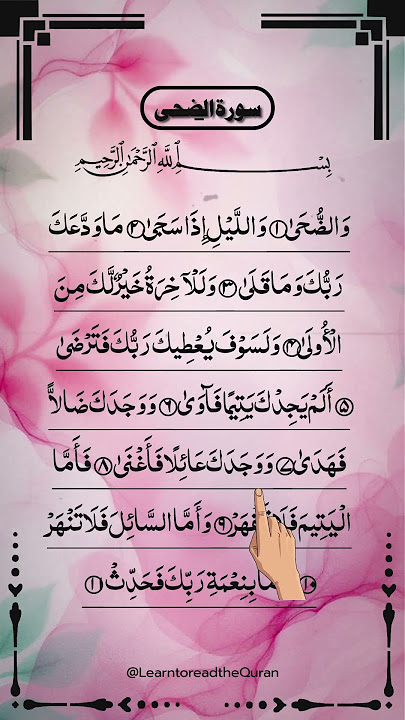 سورة الضحى
بِسْمِ اللَّهِ الرَّحْمَٰنِ الرَّحِيمِ
وَالضُّحَىٰ ١ وَاللَّيْلِ إِذَا سَجَىٰ ٢ مَا وَدَّعَكَ
رَبُّكَ وَمَا قَلَىٰ ٣ وَلَلْآخِرَةُ خَيْرٌ لَّكَ مِنَ
الْأُولَىٰ ٤ وَلَسَوْفَ يُعْطِيكَ رَبُّكَ فَتَرْضَىٰ
٥ أَلَمْ يَجِدْكَ يَتِيمًا فَآوَىٰ ٦ وَوَجَدَكَ ضَالًّا
فَهَدَىٰ ٧ وَوَجَدَكَ عَائِلًا فَأَغْنَىٰ ٨ فَأَمَّا
الْيَتِيمَ فَلَا ٩ وَأَمَّا السَّائِلَ فَلَا تَنْهَرْ
١٠ بِنِعْمَةِ رَبِّكَ فَحَدِّثْ ١١
@LearntoreadtheQuran